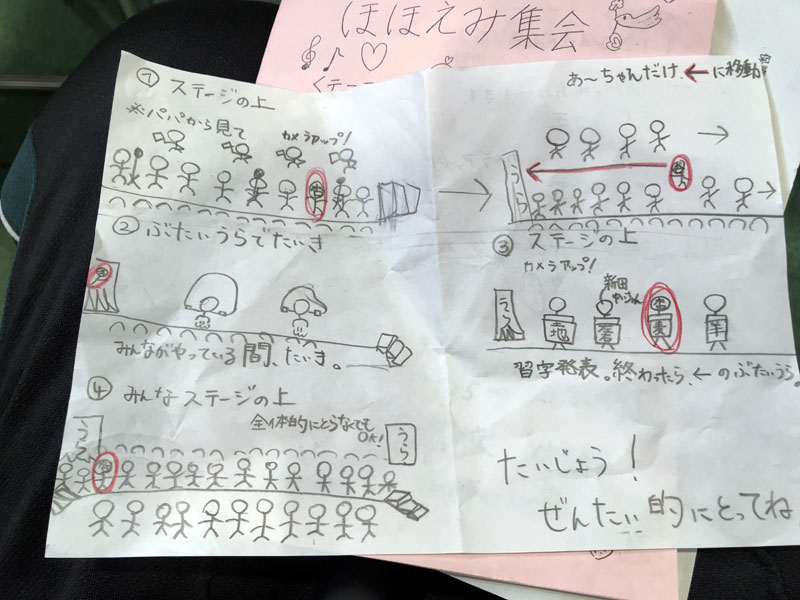 ほほえみ集会
① ステージの上
※パパから見て
カメラアップ!
あ〜ちゃんだけ、←に移動
うら
② ぶたいうらでたいき
みんながやっている間、たいき。
③ ステージの上
カメラアップ!
新田
うら
習字発表。終わったら、←のぶたいうら。
④ みんなステージの上
全体的にとらなくても
OK!
うら
うら
たいじょう!
ぜんたい的にとってね